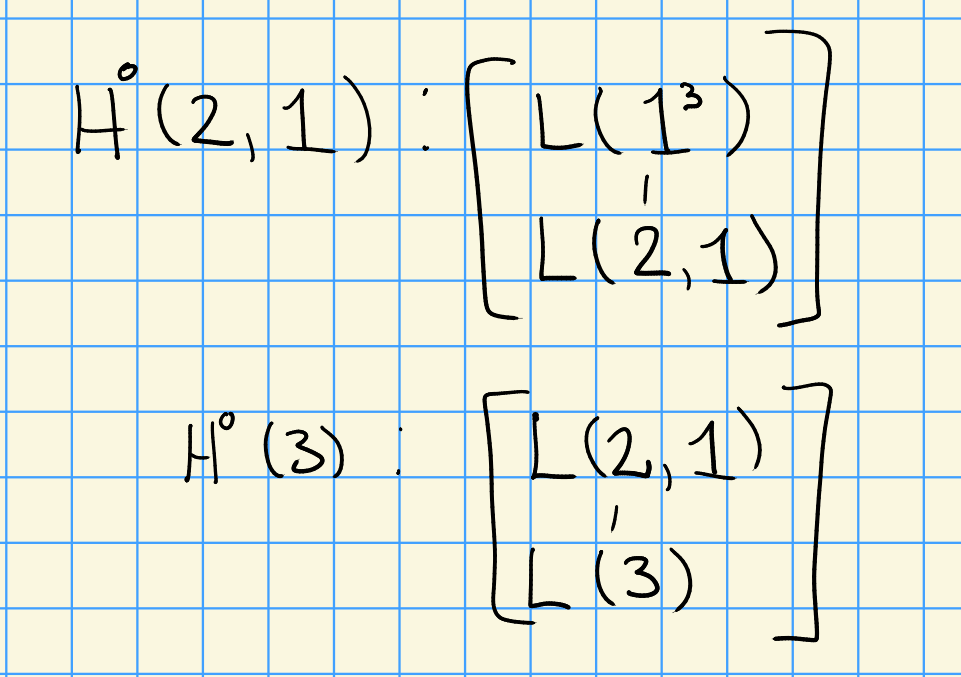 H⁰(2,1) : [ L(1³)
|
L(2,1) ]
H⁰(3) : [ L(2,1)
|
L(3) ]